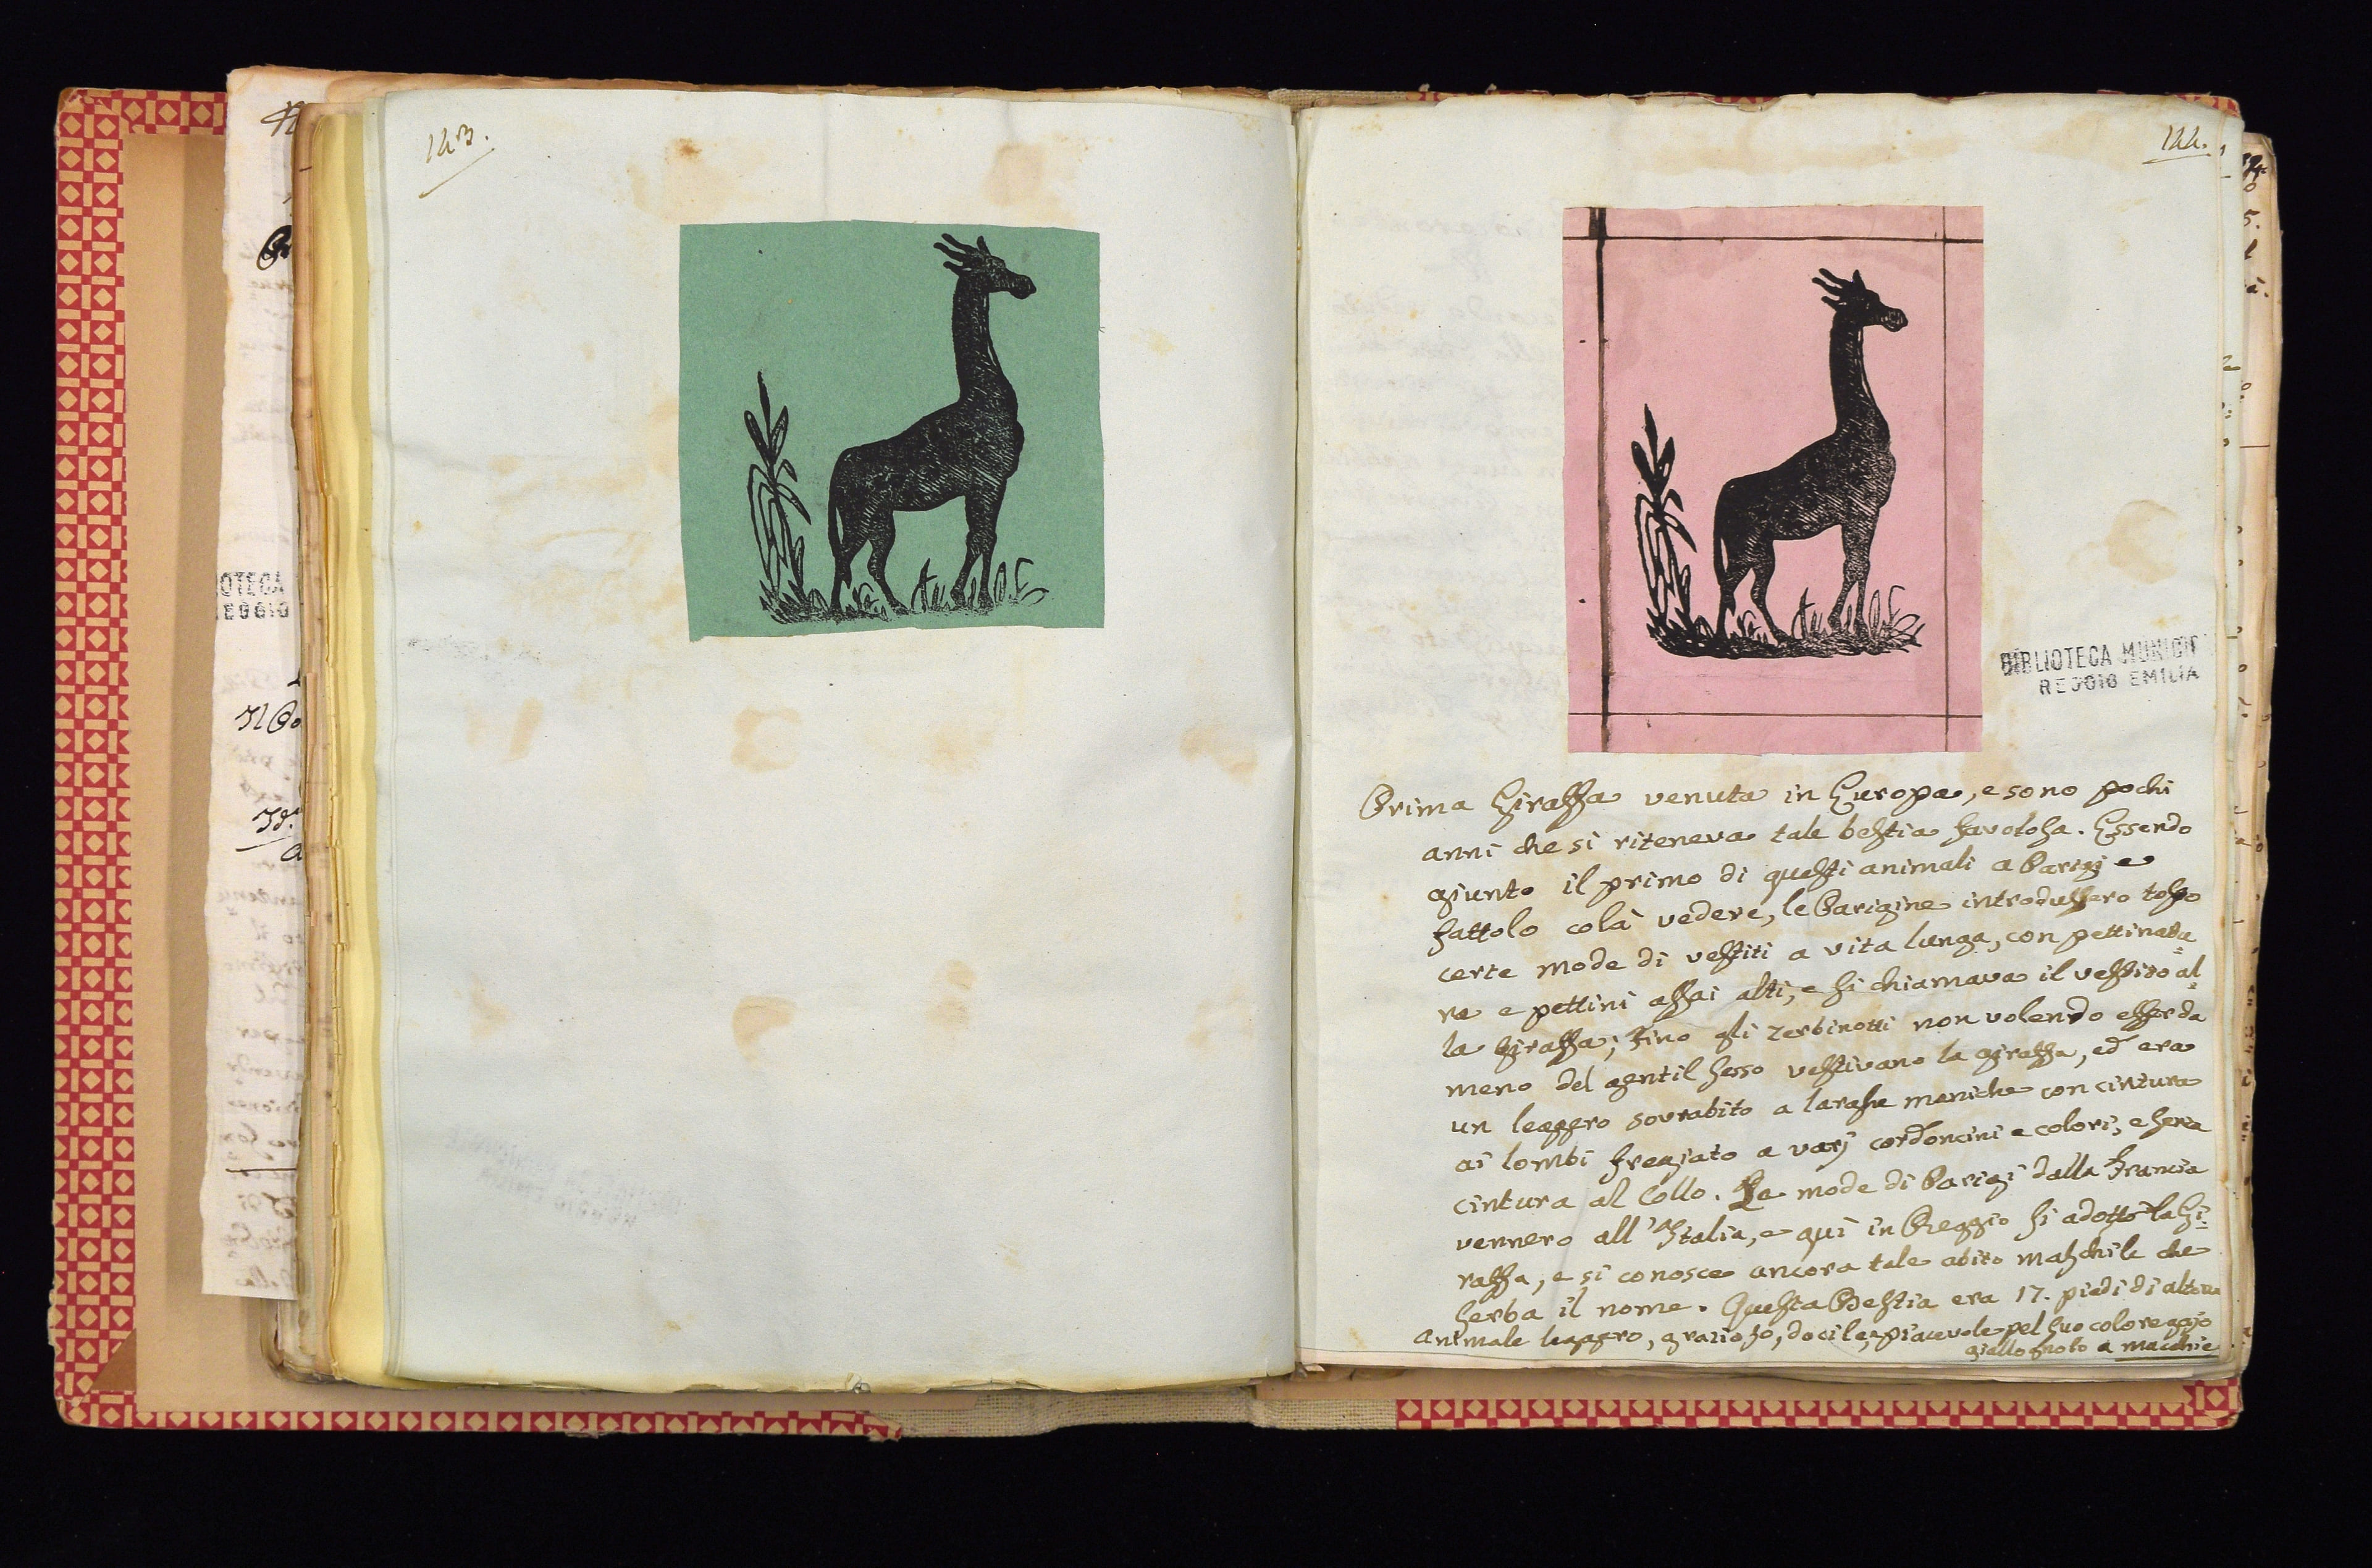 143.
OTECA
EGGIO
144.
BIBLIOTECA MUNICIP
REGGIO EMILIA
Prima Giraffa venuta in Europa, e sono pochi
anni che si riteneva tale bestia favolosa. Essendo
giunto il primo di questi animali a Parigi e
fattolo colà vedere, le Parigine introdussero tosto
certe mode di vestiti a vita lunga, con pettinatu
ra e pettini assai alti, e si chiamava il vestito al
la giraffa; Fino gli zerbinotti non volendo esser da
meno del gentil sesso vestivano la giraffa, ed era
un leggero sovrabito a larghe maniche con cintura
ai lombi fregiato a varj cordoncini e colori, e senza
cintura al Collo. Le mode di Parigi dalla Francia
vennero all'Italia, e quì in Reggio si adottò la Gi
raffa, e si conosce ancora tale abito maschile che
serba il nome. Questa Bestia era 17. piedi di altezza
animale leggero, grazioso, docile, piacevole pel suo colore gajo
giallognolo a macchie